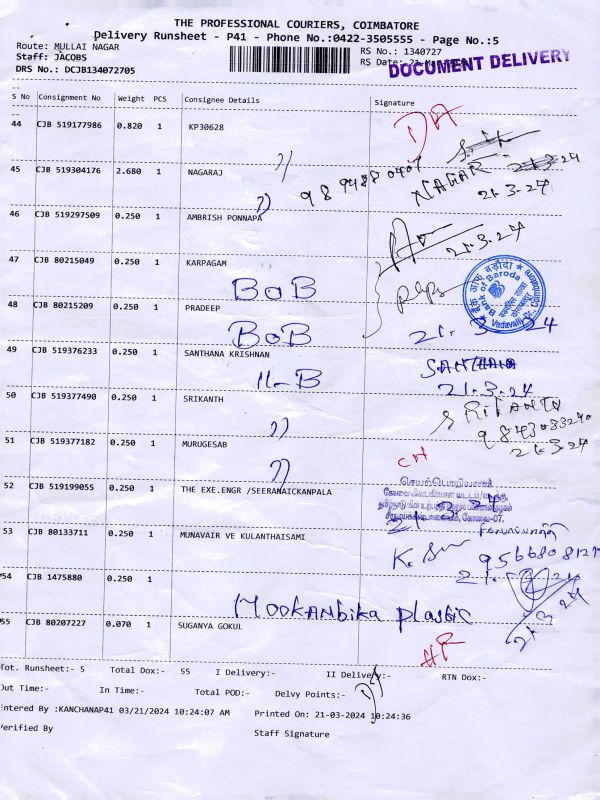 THE PROFESSIONAL COURIERS, COIMBATORE
Delivery Runsheet - P41 - Phone No.:0422-3505555 - Page No.:5
Route: MULLAI NAGAR
RS No.: 1340727
Staff: JACOBS
RS Date: 21
DOCUMENT DELIVERY
DRS No.: DCJB134072705
S No Consignment No Weight PCS Consignee Details Signature
44 CJB 519177986 0.820 1 KP30628
DA
45 CJB 519304176 2.680 1 NAGARAJ
NAGAR 21-3-24
21-3-24
46 CJB 519297509 0.250 1 AMBRISH PONNAPA
21-3-24
47 CJB 80215049 0.250 1 KARPAGAM
BOB
Bank of Baroda
48 CJB 80215209 0.250 1 PRADEEP
BOB
21.3.24
49 CJB 519376233 0.250 1 SANTHANA KRISHNAN
11-B
21-3-24
50 CJB 519377490 0.250 1 SRIKANTH
9843083240
21-3-24
51 CJB 519377182 0.250 1 MURUGESAB
52 CJB 519199055 0.250 1 THE EXE.ENGR /SEERANAICKANPALA
செயற்பொறியாளர்
21.3.24
53 CJB 80133711 0.250 1 MUNAVAIR VE KULANTHAISAMI
54 CJB 1475880 0.250 1
Mookanbika plastic
21-3-24
55 CJB 80207227 0.070 1 SUGANYA GOKUL
Tot. Runsheet:- 5 Total Dox:- 55 I Delivery:- II Delivery:- RTN Dox:-
Out Time:- In Time:- Total POD:- Delvy Points:-
Entered By :KANCHANAP41 03/21/2024 10:24:07 AM Printed On: 21-03-2024 10:24:36
Verified By
Staff Signature